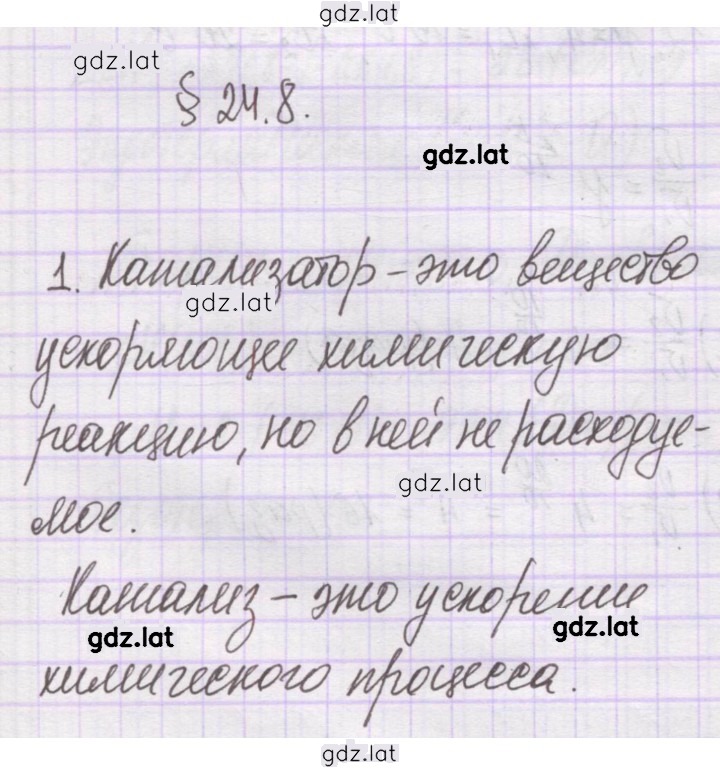 gdz.lat
gdz.lat
§ 24.8.
gdz.lat
1. Катализатор – это вещество
gdz.lat
ускоряющее химическую
реакцию, но в ней не расходуе-
gdz.lat
мое.
Катализ – это ускорение
gdz.lat gdz.lat
химического процесса.
gdz.lat